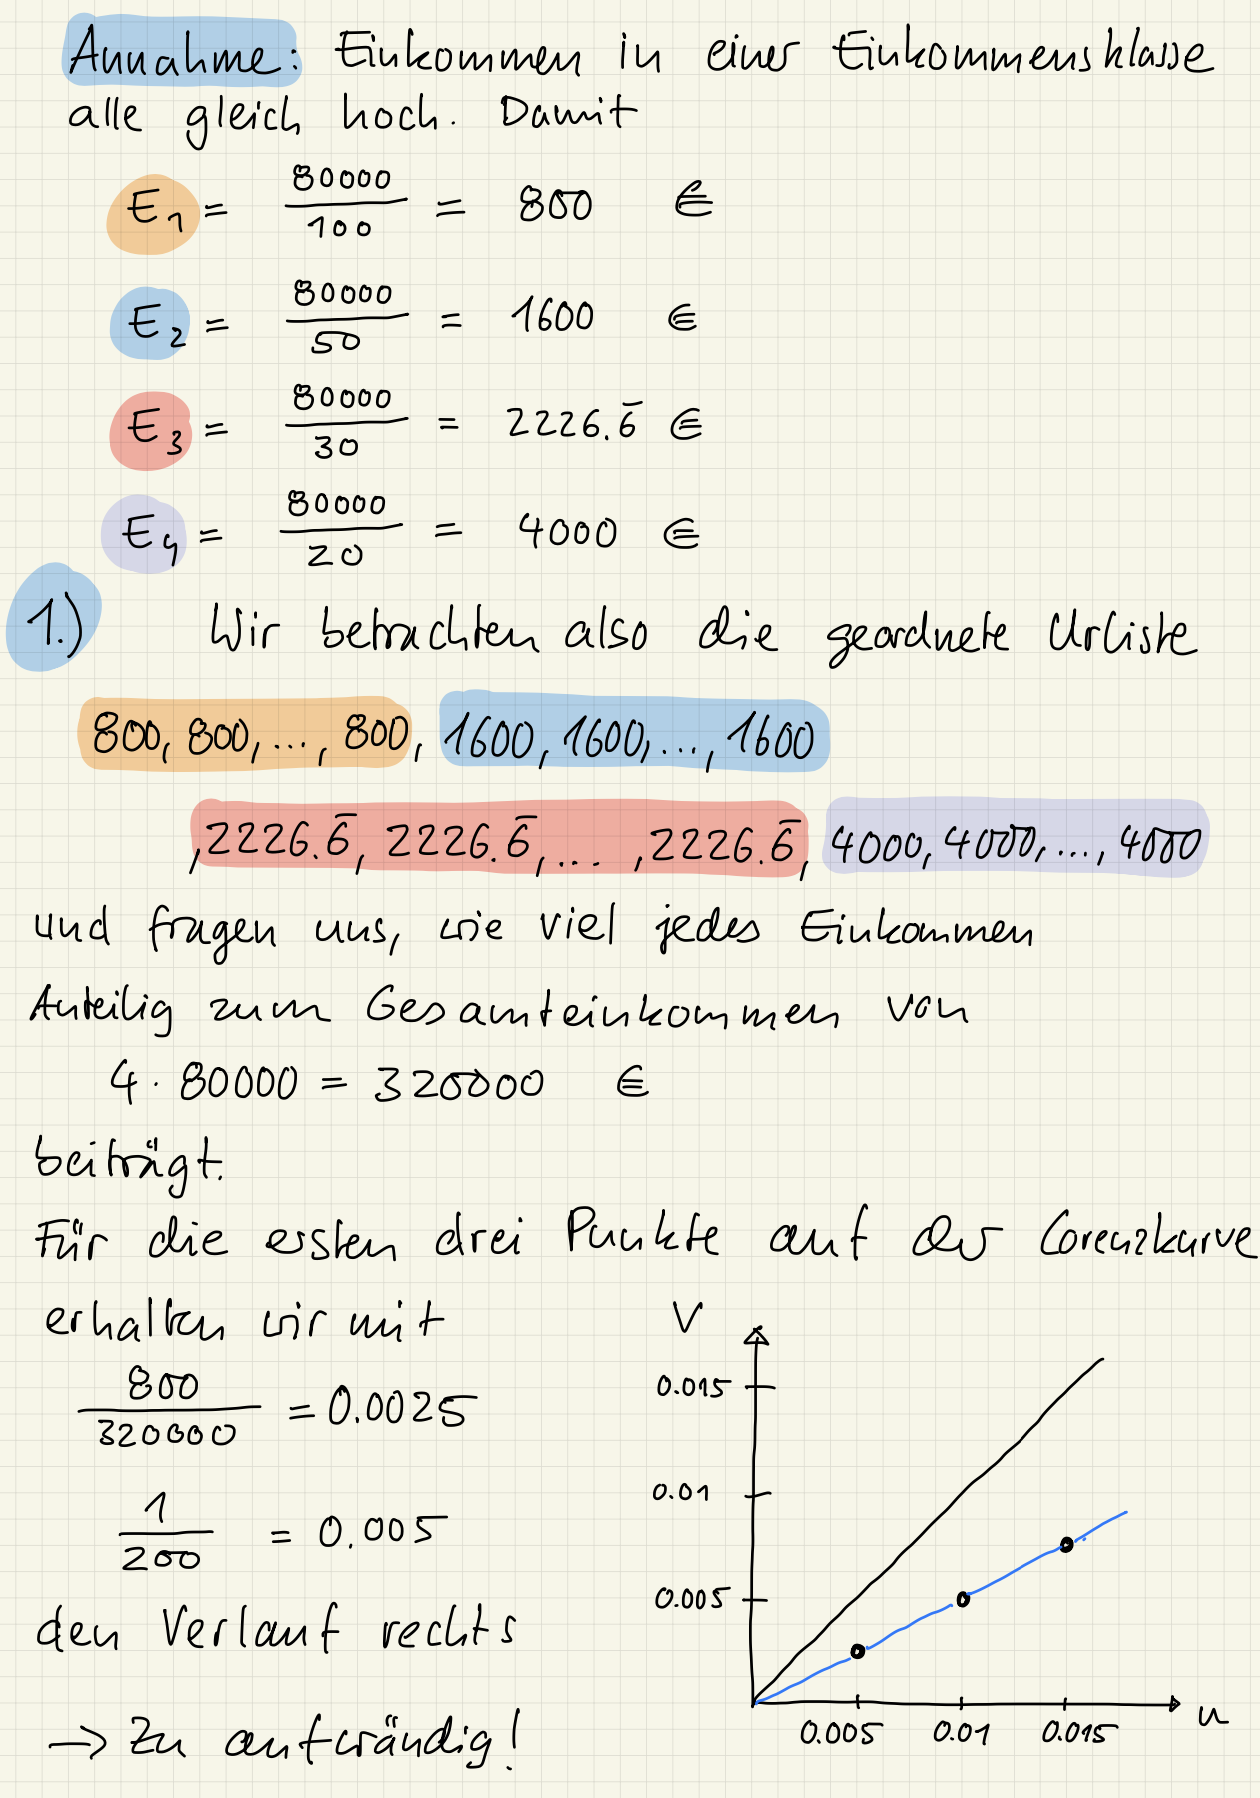 Annahme: Einkommen in einer Einkommensklasse
alle gleich hoch. Damit
E₁ = 80000/100 = 800 €
E₂ = 80000/50 = 1600 €
E₃ = 80000/30 = 2226.6̅ €
E₄ = 80000/20 = 4000 €
1.) Wir betrachten also die geordnete Urliste
800, 800, ..., 800, 1600, 1600, ..., 1600
, 2226.6̅, 2226.6̅, ... , 2226.6̅, 4000, 4000, ..., 4000
und fragen uns, wie viel jedes Einkommen
Anteilig zum Gesamteinkommen von
4 · 80000 = 320000 €
beiträgt.
Für die ersten drei Punkte auf der Lorenzkurve
erhalten wir mit
800/320000 = 0.0025
1/200 = 0.005
den Verlauf rechts
→ Zu aufwändig!
V
0.015
0.01
0.005
0.005 0.01 0.015 u